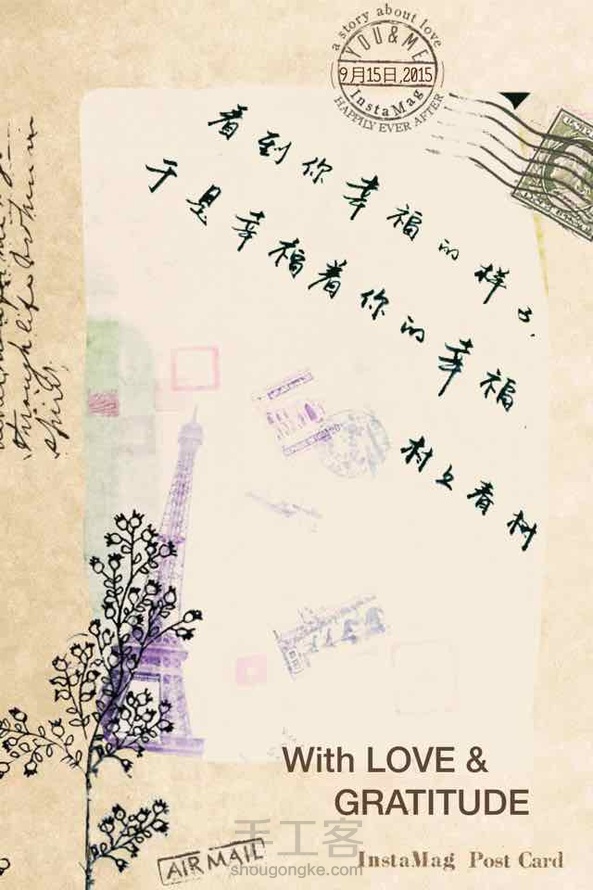 a story about love
YOU & ME
9月15日,2015
InstaMag
HAPPILY EVER AFTER
看到你幸福的样子,
于是幸福着你的幸福
村上春树
With LOVE &
GRATITUDE
手工客
AIR MAIL
InstaMag Post Card
shougongke.com